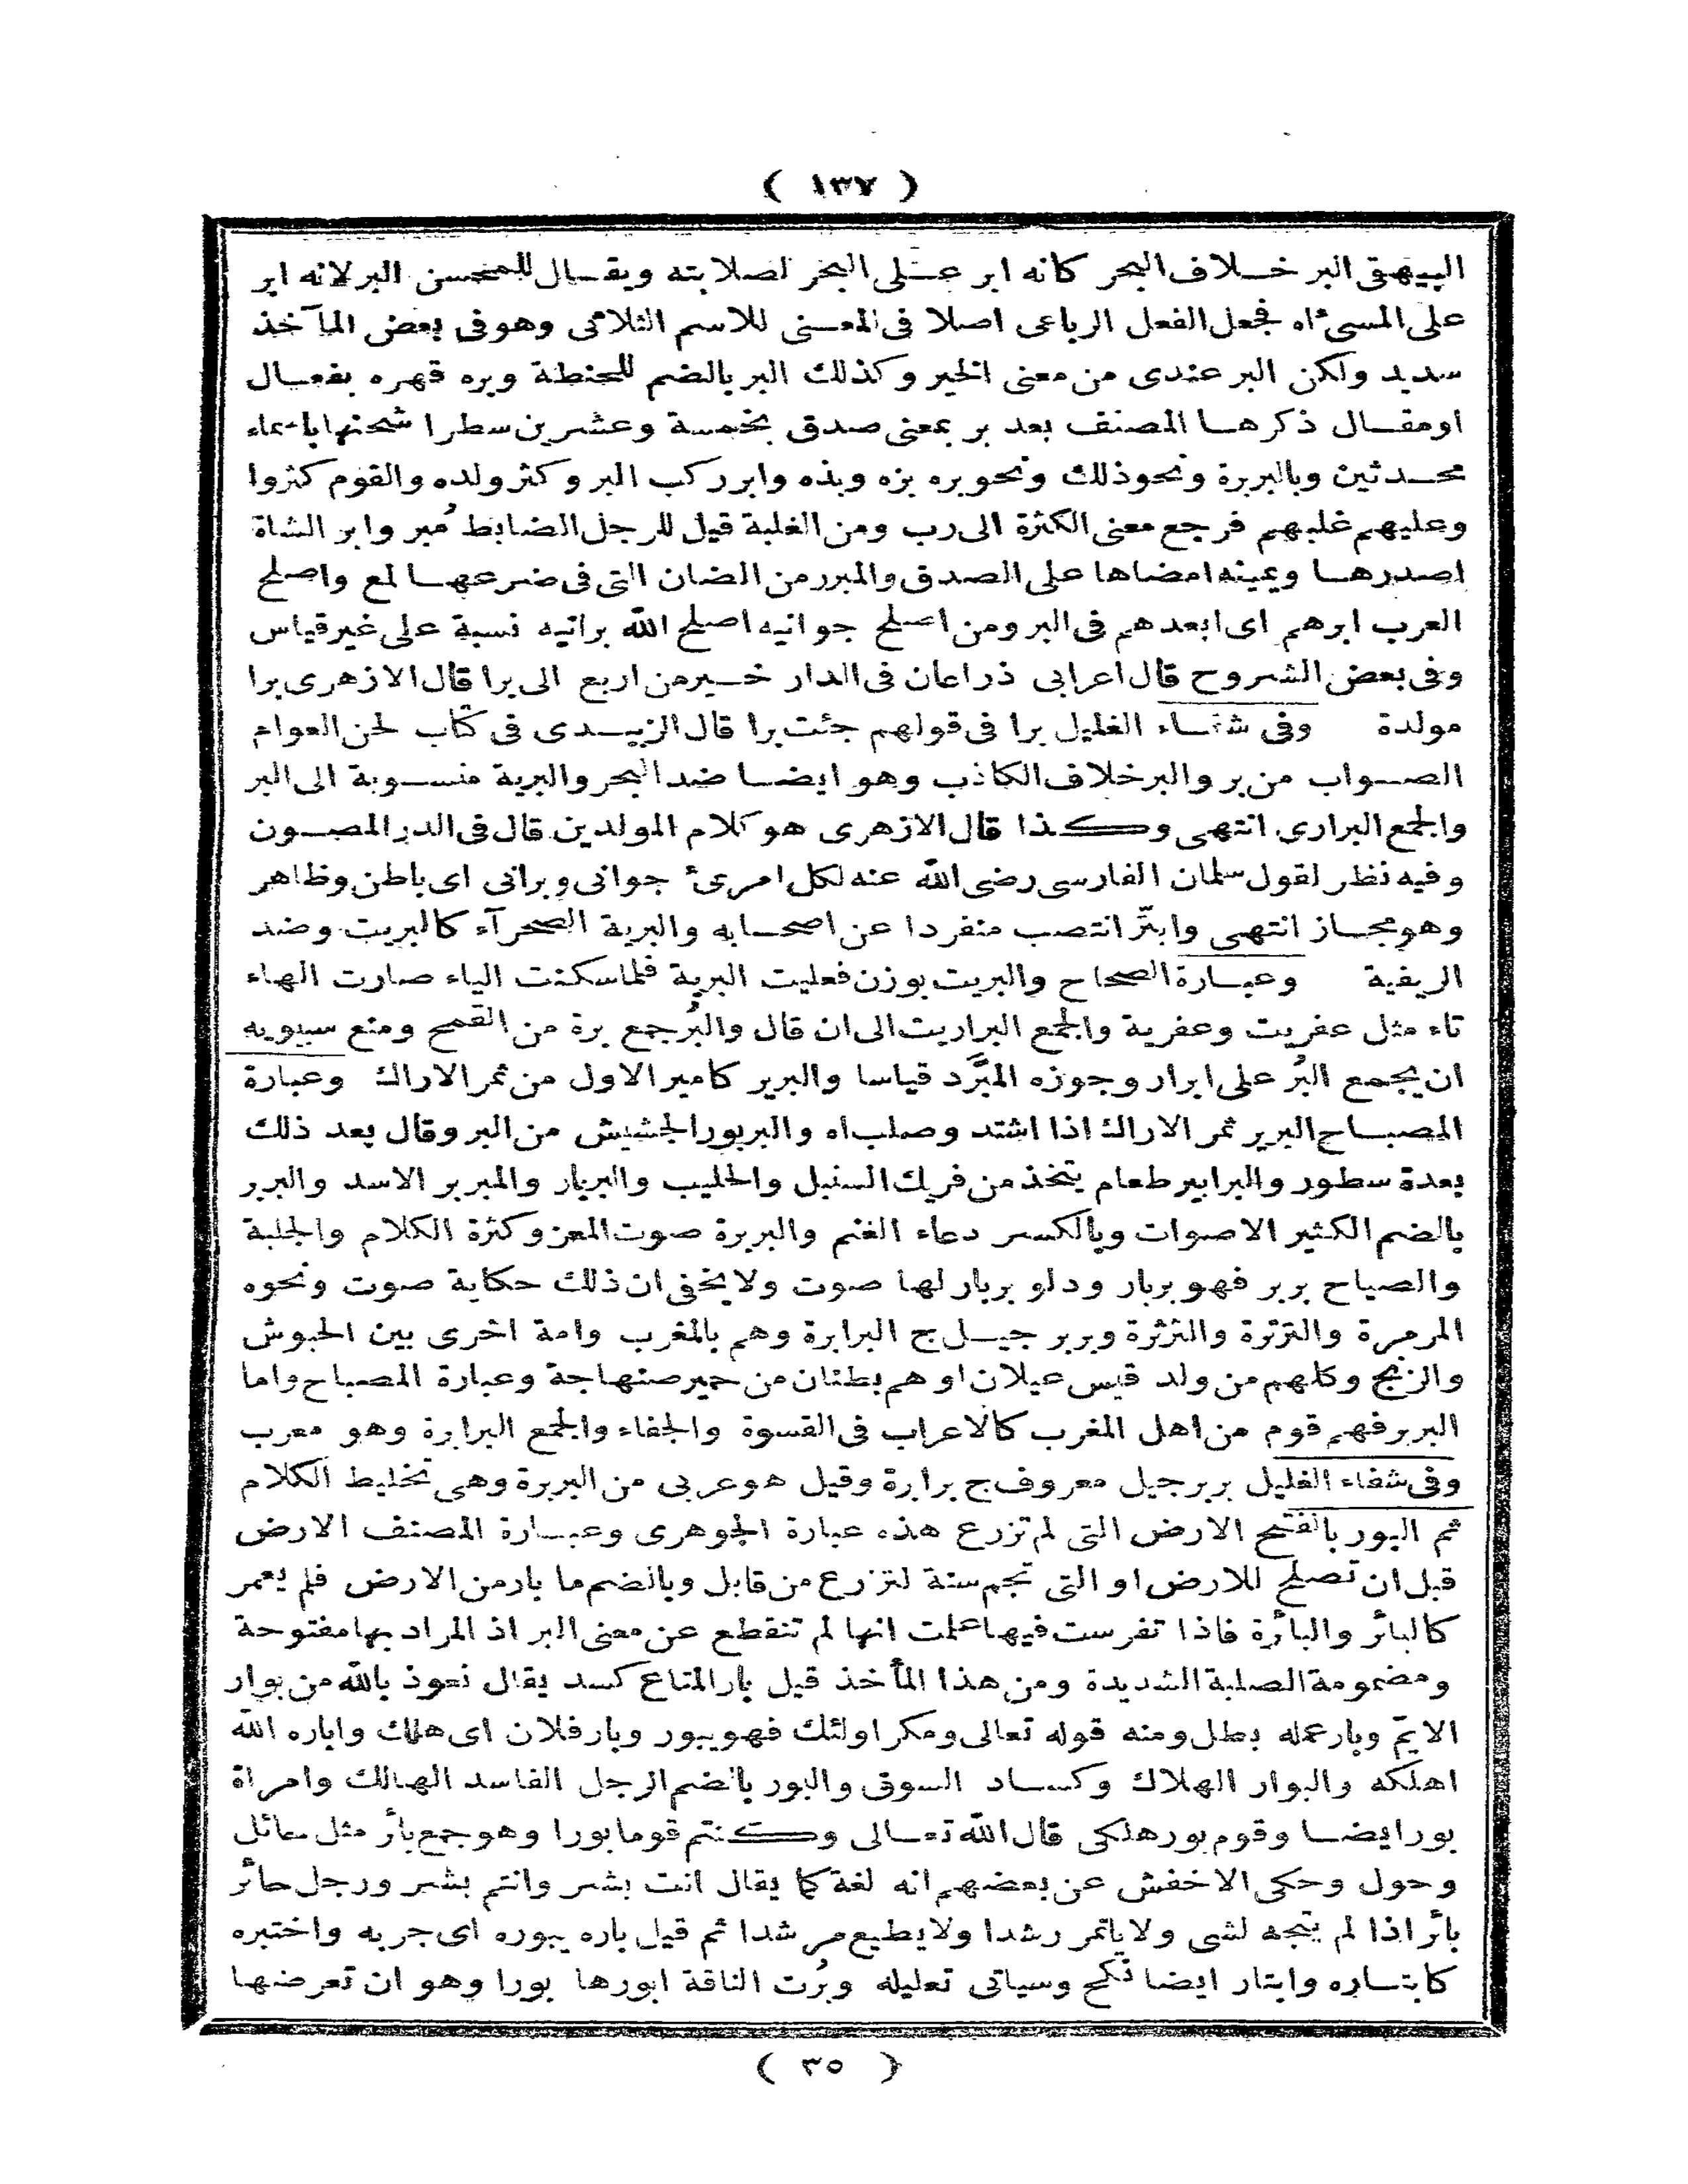 ( ١٣٧ )
البيهقى البر خلاف البحر كانه ابر على البحر لصلابته ويقال للمحسن البر لانه ابر
على المسىء اه فجعل الفعل الرباعى اصلا فى المعنى للاسم الثلاثى وهو فى بعض المآخذ
سديد ولكن البر عندى من معنى الخير وكذلك البر بالضم للحنطة وبره قهره بفعال
او مقال ذكرها المصنف بعد بر بمعنى صدق بخمسة وعشرين سطرا شحنها باسماء
محدثين وبالبربرة ونحو ذلك ونحو بره بزه وبذه وابر ركب البر وكثر ولده والقوم كثروا
وعليهم غلبهم فرجع معنى الكثرة الى رب ومن الغلبة قيل للرجل الضابط مُبر وابر الشاة
اصدرها ويمينه امضاها على الصدق والمبرر من الضان التى فى ضرعها لمع واصلح
العرب ابرهم اى ابعدهم فى البر ومن اصلح جوانيه اصلح الله برانيه نسبة على غير قياس
وفى بعض الشروح قال اعرابى ذراعان فى الدار خير من اربع الى برا قال الازهرى برا
مولدة وفى شفاء الغليل برا فى قولهم جئت برا قال الزبيدى فى كتاب لحن العوام
الصواب من بر والبر خلاف الكاذب وهو ايضا ضد البحر والبرية منسوبة الى البر
والجمع البرارى انتهى وكذا قال الازهرى هو كلام المولدين قال فى الدر المصون
وفيه نظر لقول سلمان الفارسى رضى الله عنه لكل امرئ جوانى وبرانى اى باطن وظاهر
وهو مجاز انتهى وابترّ انتصب منفردا عن اصحابه والبرية الصحرآء كالبريت وضد
الريفية وعبارة الصحاح والبريت بوزن فعليت البرية فلما سكنت الياء صارت الهاء
تاء مثل عفريت وعفرية والجمع البراريت الى ان قال والبُر جمع برة من القمح ومنع سيبويه
ان يجمع البُر على ابرار وجوزه المبَّرد قياسا والبرير كامير الاول من ثمر الاراك وعبارة
المصباح البرير ثمر الاراك اذا اشتد وصلب اه والبربور الجشيش من البر وقال بعد ذلك
بعدة سطور والبرابير طعام يتخذ من فريك السنبل والحليب والبربار والمبربر الاسد والبربر
بالضم الكثير الاصوات وبالكسر دعاء الغنم والبربرة صوت المعز وكثرة الكلام والجلبة
والصياح بربر فهو بربار ودلو بربار لها صوت ولا يخفى ان ذلك حكاية صوت ونحوه
المرمرة والترترة والثرثرة وبربر جيل ج البرابرة وهم بالمغرب وامة اخرى بين الحبوش
والزنج وكلهم من ولد قيس عيلان او هم بطنان من حمير صنهاجة وعبارة المصباح واما
البربر فهم قوم من اهل المغرب كالاعراب فى القسوة والجفاء والجمع البرابرة وهو معرب
وفى شفاء الغليل بربر جيل معروف ج برابرة وقيل هو عربى من البربرة وهى تخليط الكلام
ثم البور بالفتح الارض التى لم تزرع هذه عبارة الجوهرى وعبارة المصنف الارض
قبل ان تصلح للارض او التى تجم سنة لتزرع من قابل وبالضم ما بار من الارض فلم يعمر
كالبائر والبائرة فاذا تفرست فيها علمت انها لم تنقطع عن معنى البر اذ المراد بها مفتوحة
ومضمومة الصلبة الشديدة ومن هذا المأخذ قيل بار المتاع كسد يقال نعوذ بالله من بوار
الايّم وبار عمله بطل ومنه قوله تعالى ومكر اولئك هو يبور وبار فلان اى هلك واباره الله
اهلكه والبوار الهلاك وكساد السوق والبور بالضم الرجل الفاسد الهالك وامراة
بور ايضا وقوم بور هلكى قال الله تعالى وكنتم قوما بورا وهو جمع بائر مثل حائل
وحول وحكى الاخفش عن بعضهم انه لغة كما يقال انت بشر وانتم بشر ورجل حائر
بائر اذا لم يتجه لشى ولا ياتمر رشدا ولا يطيع مرشدا ثم قيل باره يبوره اى جربه واختبره
كابتاره وابتار ايضا نكح وسياتى تعليله وبُرت الناقة ابورها بورا وهو ان تعرضها
( ٣٥ )